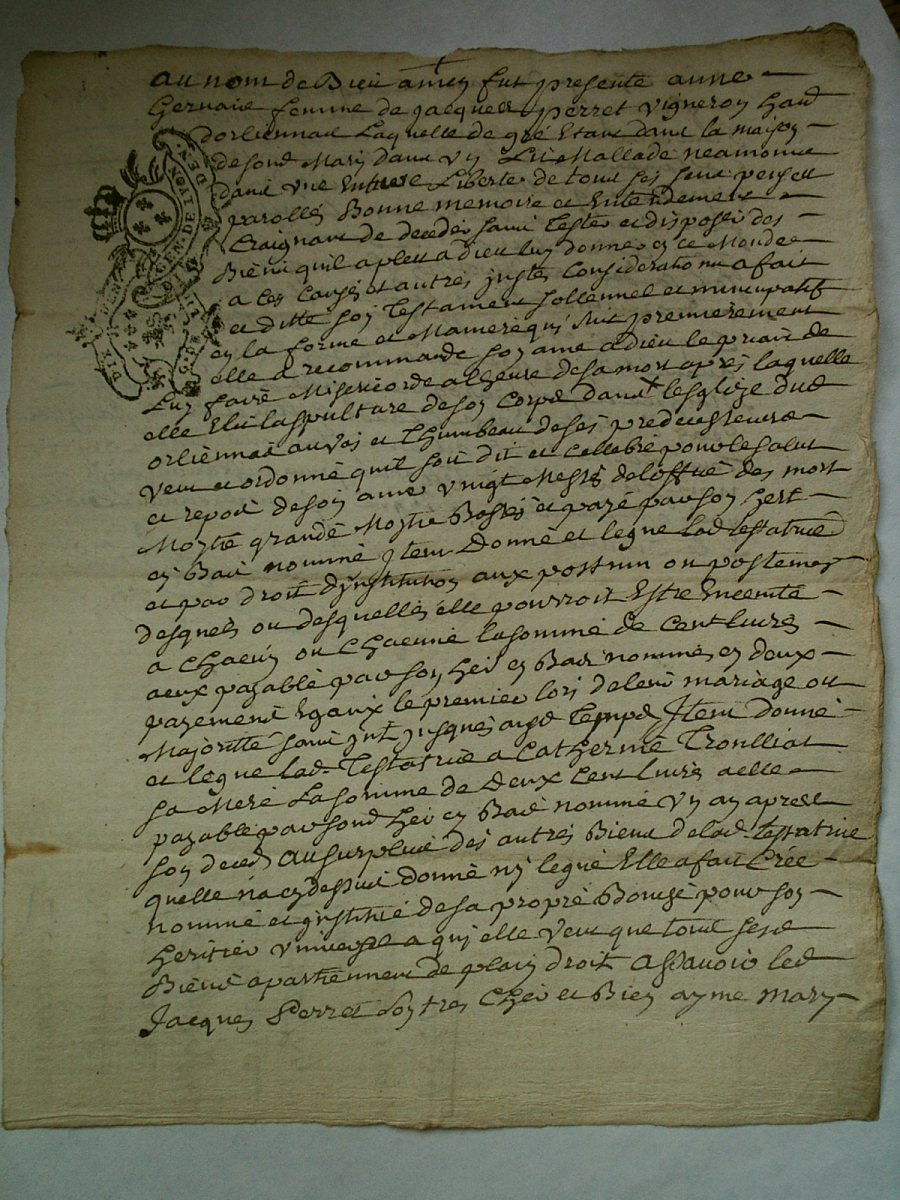 au nom de Dieu amen fut presente anne
Gervaie femme de Jacques perret vigneron
dorliennac Laquelle de gré Etant dans la maison
de sond Mary dans un Lit Mallade neamoins
dans une Entiere Liberte de tous ses sens
parolles Bonne memoire et Entendement
Craignant de deceder sans Tester et disposer des
Biens quil a pleu a Dieu luy donner en ce Monde
a ces causes et autres justes Considerations a fait
et ditte son Testament sollennel et nuncupatif
en la forme et Maniere qui suit premierement
elle a recommande son ame a dieu le priant de
Luy faire Misericorde a lheure de sa mort apres laquelle
elle Elit la sepulture de son Corps dans lesglize dud
orliennac au vas et Thumbeau de ses predecesseurs
veut et ordonne quil soit dit et cellebré pour le salut
et repos de son ame vingt Messes de loffice des mort
Moytié grande Moytié Basses et payé par son hert
en Bas nommé Jtem Donne et legue lad testatrice
et par droit dJnstitution aux possum ou postemes
desquels ou desquelles elle pourroit Estre Enceinte
a Chacun ou Chacune la somme de Cent Livres
a eux payable par son heir en Bas nomme en deux
payement Egaux le premier lors de leur mariage ou
Majorité sans jnt jusques aud Temps Jtem donne
et legue lad Testatrice a Catherine Tronlliat
sa Mere La somme de Deux Cent Livres a elle
payable par sond heir en Bas nomme un an apres
son deced Au surplus des autres Biens de lad testatrice
quelle na cy dessus donné ny legué Elle a fait Crée
nommé et jnstitué de sa propre Bouche pour son
heritier universel a qui elle veut que tous sesd
Biens apartiennent de plain droit assavoir led
Jacques Perret son tres Cher et Bien ayme Mary
GEN. DE LYON